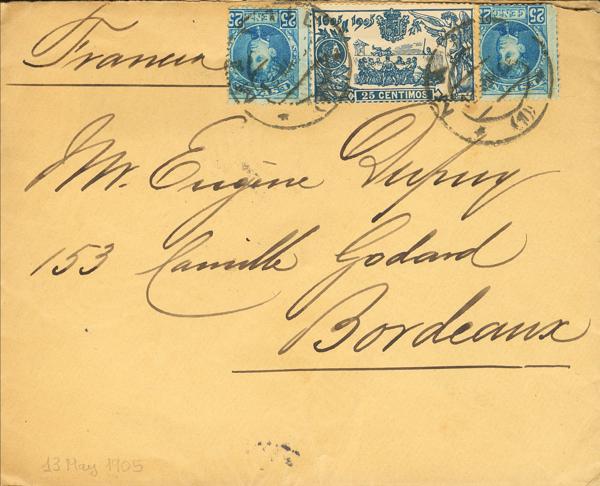 Francia
1605 1905
25 CENTIMOS
25
25
Mr. Eugène Dupuy
153 Camille Godard
Bordeaux
13 May 1905